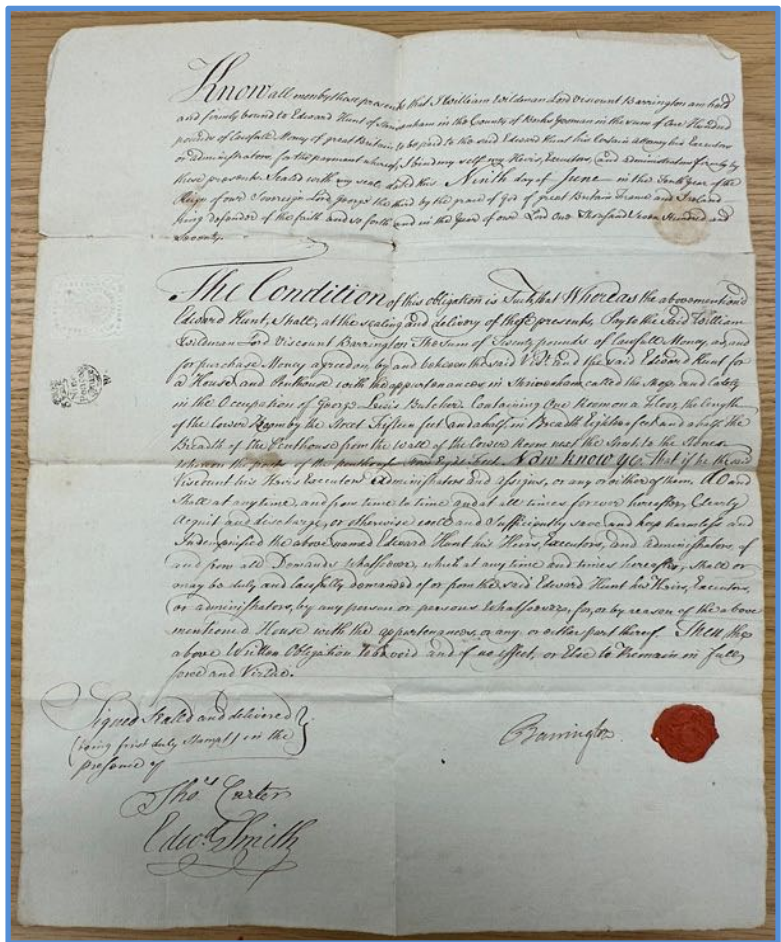 Know all men by these presents that I William Wildman Lord Viscount Barrington am held
and firmly bound to Edward Hunt of Shrivenham in the County of Berks Yeoman in the sum of One Hundred
pounds of Lawfull Money of great Britain, to be paid to the said Edward Hunt his Certain attorney his Executors
or administrators, for the payment whereof, I bind my self my Heirs, Executors, and administrators firmly by
these presents Sealed with my seal, dated this Ninth day of June in the Tenth Year of the
Reign of our Sovereign Lord George the third by the grace of God of great Britain France and Ireland
King defender of the faith and so forth and in the Year of our Lord One Thousand Seven Hundred and
Seventy.
The Condition of this obligation is Such, that Whereas the abovemention'd
Edward Hunt, Shall, at the sealing and delivery of these presents, Pay to the Said William
Wildman Lord Viscount Barrington The sum of Twenty pounds of Lawfull Money, as, and
for purchase Money agreed on, by and between the said Visct. and the said Edward Hunt for
a House and Penthouse with the appertenances in Shrivenham called the Shop, and Lately
in the Occupation of George Lewis Butcher. Containing One Room on a Floor, the length
of the Lower Room by the Street Fifteen feet and a half, in Breadth Eighteen feet and a half the
Breadth of the Penthouse from the Wall of the Lower Room next the Street to the Stones
whereon the posts of the penthouse Eight Feet. Now know ye, that if he the said
Viscount his Heirs Executors Administrators and assigns, or any or either of them. Do and
Shall at any time, and from time to time and at all times for ever hereafter, Clearly
Acquit and discharge, or otherwise well and Sufficiently save and keep harmless and
Indemnified the above named Edward Hunt his Heirs, Executors, and administrators, of
and from all Demands whatsoever, which at any time and times hereafter, shall or
may be duly and Lawfully demanded of or from the said Edward Hunt his Heirs, Executors,
or administrators, by any person or persons whatsoever, for, or by reason of the above
mentioned House with the appertenances, or any or either part thereof. Then this
above Written Obligation to be void and of no effect, or Else to Remain in full
force and Virtue.
Signed Sealed and delivered
(being first duly Stampt) in the
presence of
Barrington
Thos. Carter
Edwd. Smith